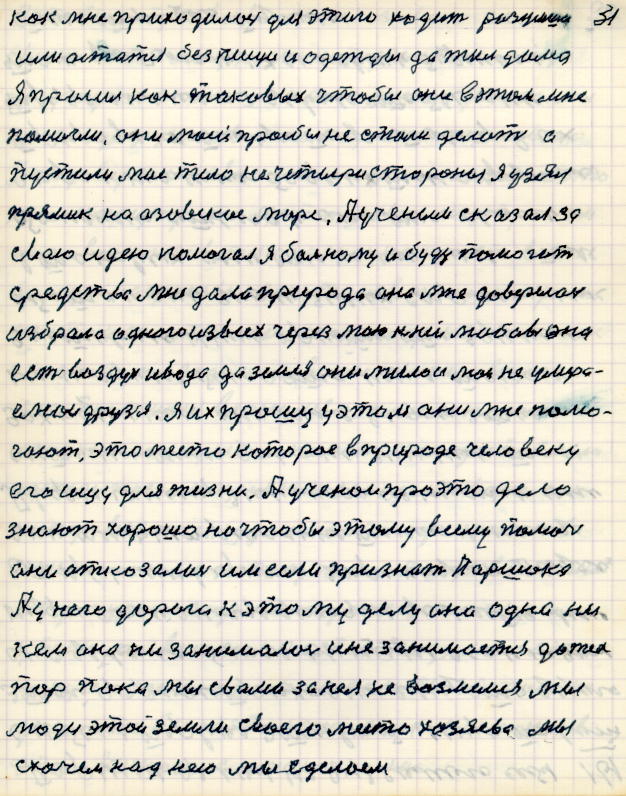 как мне приходилос для этого ходит разумна 31
или остатся без пищи и одежды да жил дома
Я просил как таковых чтобы они в этом мне
помочли. они моей прозбы не стали делоть а
пустили мое тело на четыри стороны я узял
прямик на азовское море. А ученым сказал за
свою идею помогал я болному и буду помогат
средства мне дала природа она мне доверилас
избрала одного из всех через мою к ней любов она
ест воздух и вода да земля они милои мои не умира-
емои друзя. я их прошу у этом они мне помо-
гают, это место которое в природе человеку
его ищу для жизни. А ученои про это дело
знают хорошо но чтобы этому всему помоч
они отказалис им если признат Паршока
А у него дорога к этому делу она одна ни
кем она ни занималос и не занимается до тех
пор пока мы свами за нея не возмемся мы
люди этой земли своего место хозяева мы
схочем над нею мы сделоем